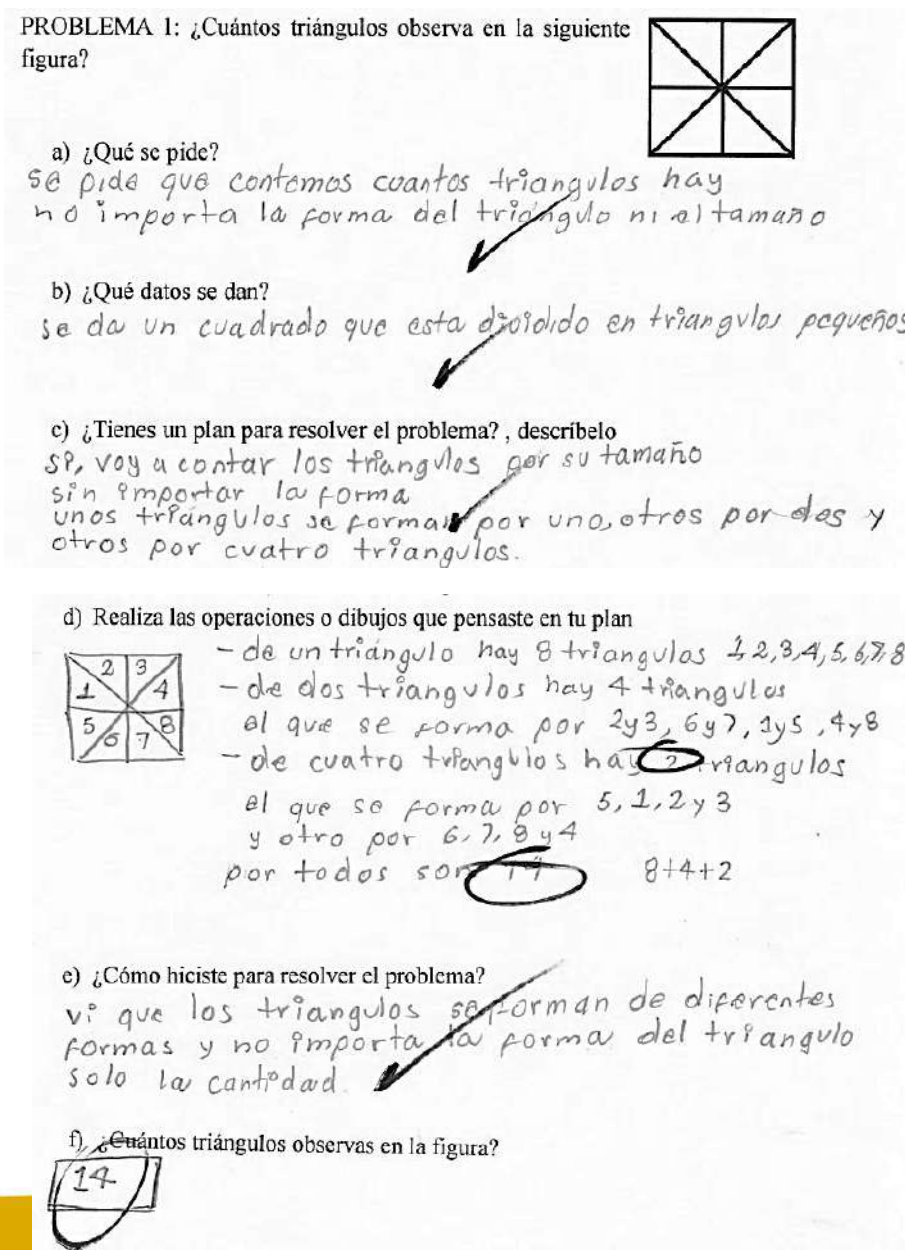 PROBLEMA 1: ¿Cuántos triángulos observa en la siguiente
figura?
a) ¿Qué se pide?
se pide que contemos cuantos triangulos hay
no importa la forma del triángulo ni el tamaño
b) ¿Qué datos se dan?
se da un cuadrado que esta dividido en triangulos pequeños
c) ¿Tienes un plan para resolver el problema? , descríbelo
si, voy a contar los triangulos por su tamaño
sin importar la forma
unos triangulos se forman por uno, otros por dos y
otros por cuatro triangulos.
d) Realiza las operaciones o dibujos que pensaste en tu plan
- de un triángulo hay 8 triangulos 1,2,3,4,5,6,7,8
2 3
1 4
5 8
6 7
- de dos triangulos hay 4 triangulos
el que se forma por 2y3, 6y7, 1y5, 4y8
- de cuatro triangulos hay 2 triangulos
el que se forma por 5,1,2 y 3
y otro por 6,7,8 y 4
por todos son 14 8+4+2
e) ¿Cómo hiciste para resolver el problema?
vi que los triangulos se forman de diferentes
formas y no importa la forma del triangulo
solo la cantidad.
f) ¿Cuántos triángulos observas en la figura?
14